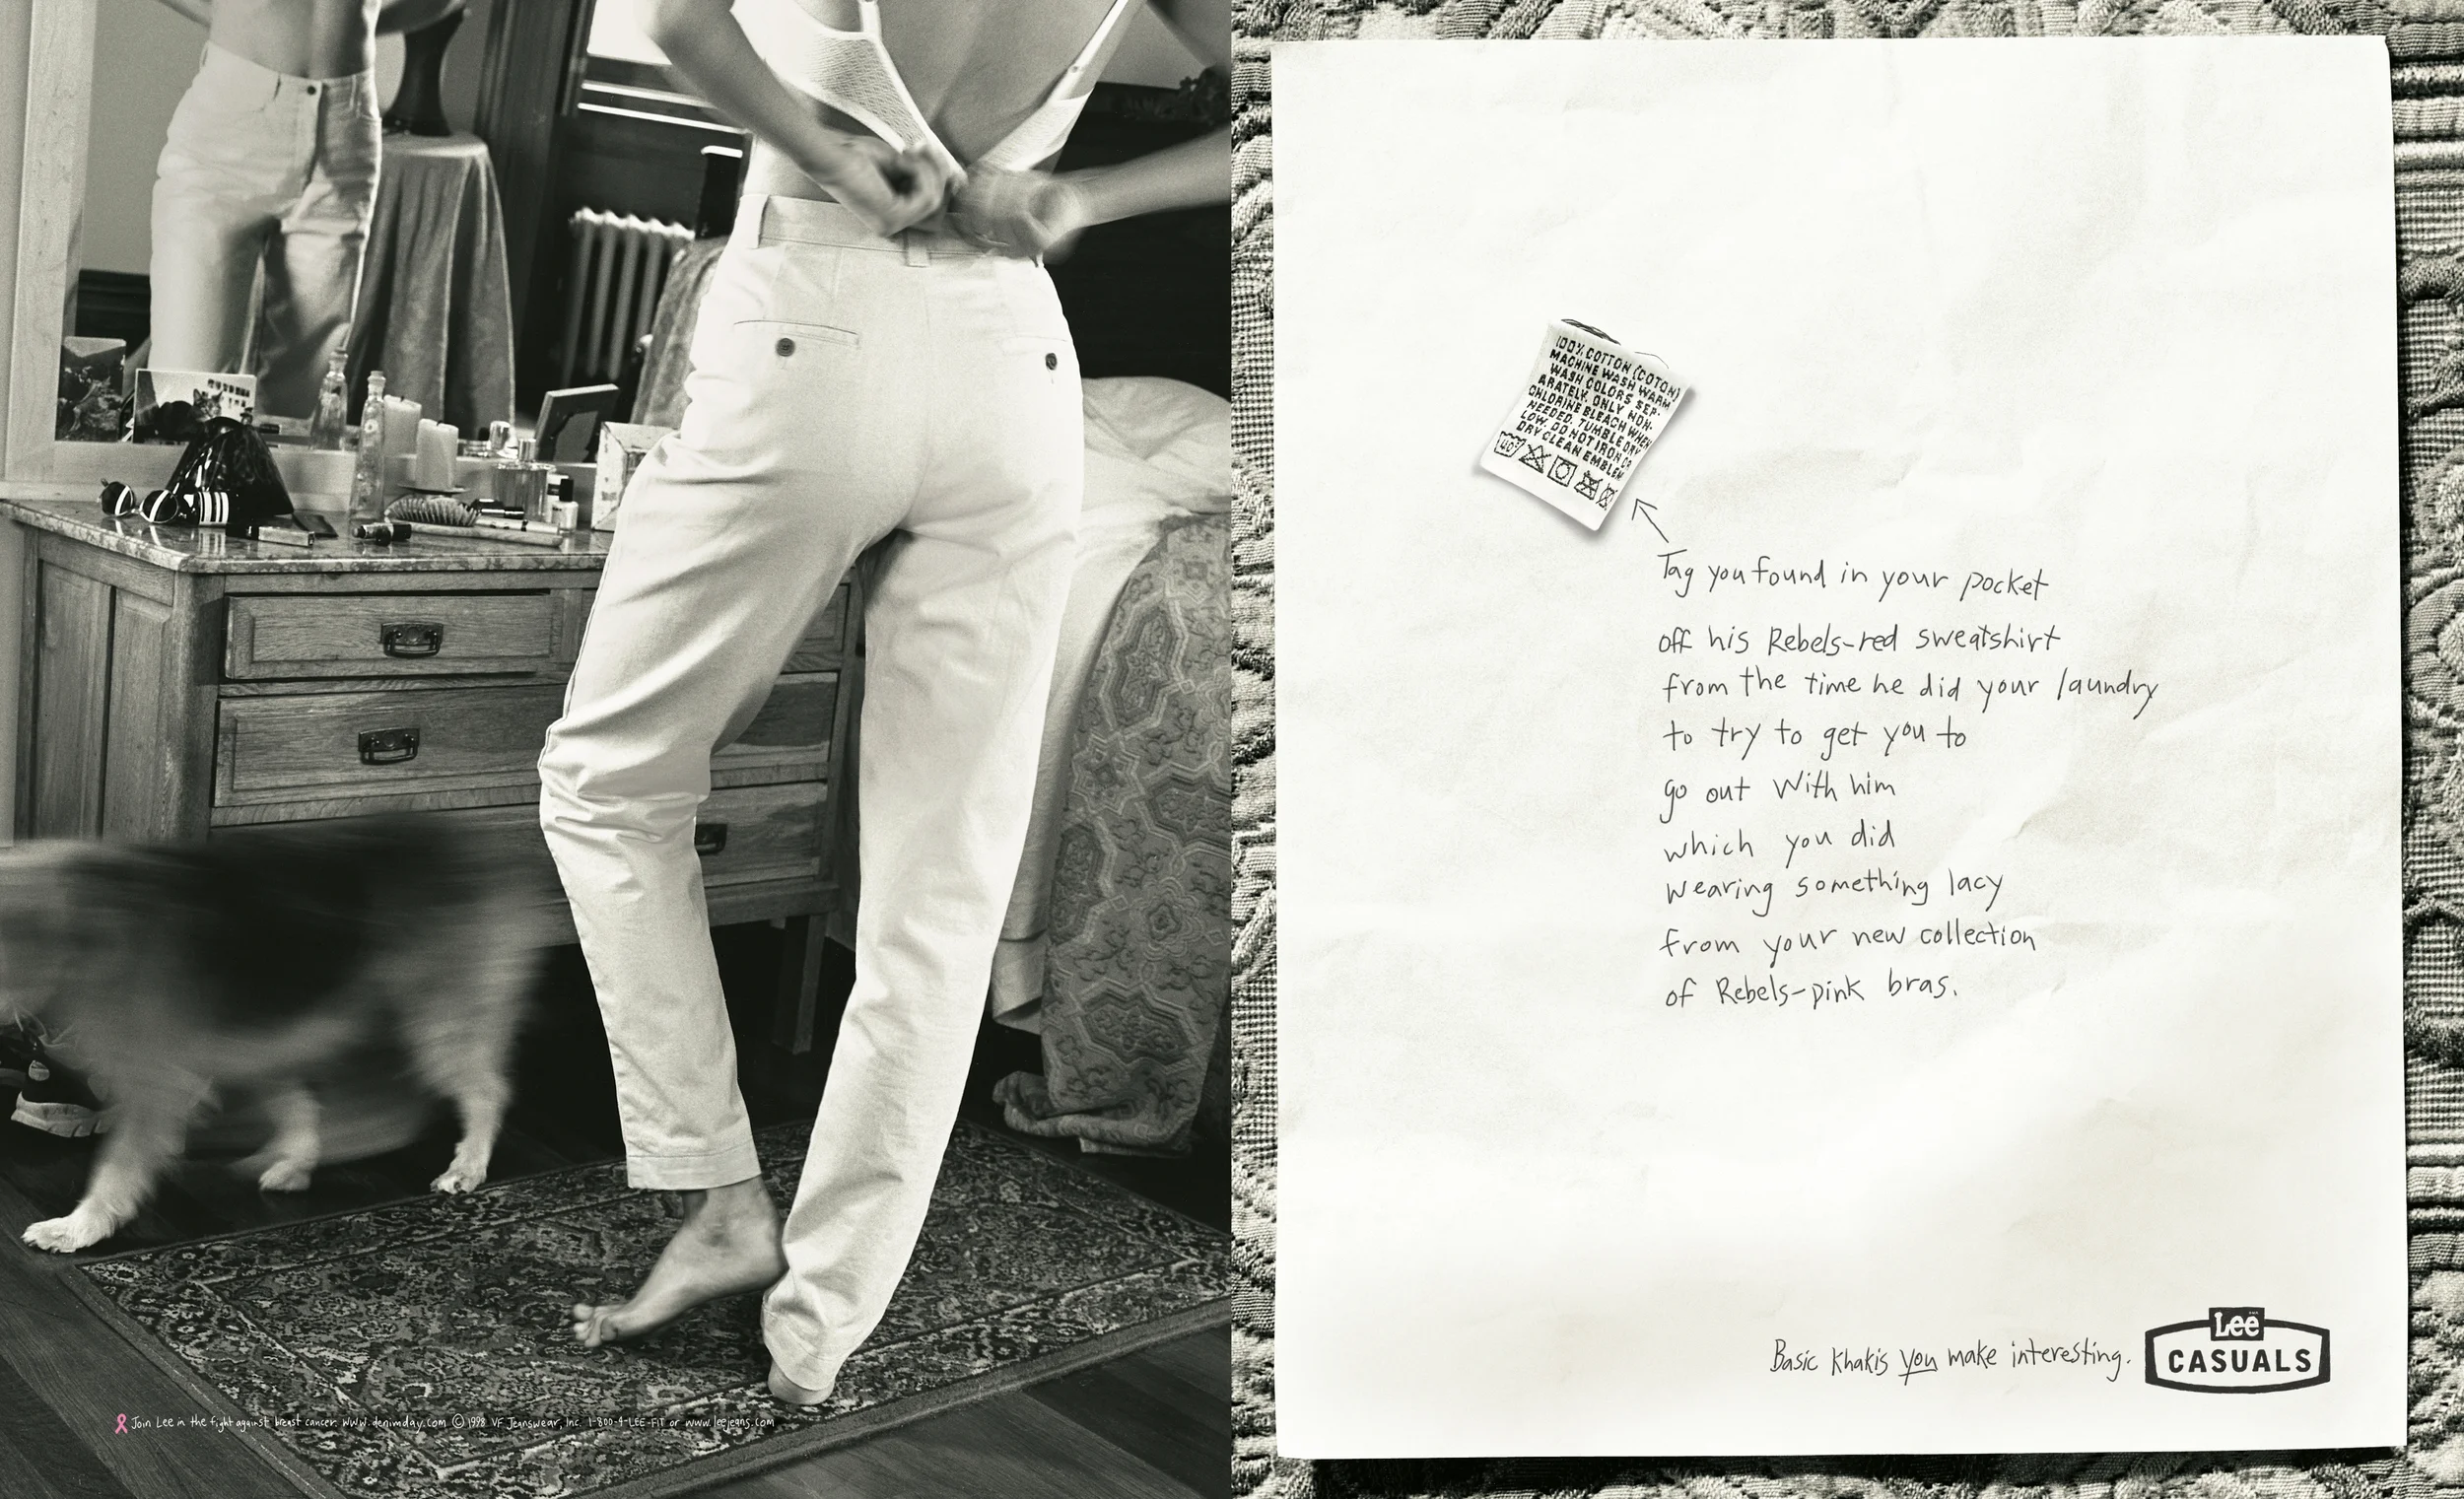 100% COTTON (COTON)
MACHINE WASH WARM
WASH COLORS SEP-
ARATELY. ONLY NON-
CHLORINE BLEACH WHEN
NEEDED. TUMBLE DRY
LOW. DO NOT IRON OR
DRY CLEAN EMBLEM
Tag you found in your pocket
off his Rebels-red sweatshirt
from the time he did your laundry
to try to get you to
go out with him
which you did
wearing something lacy
from your new collection
of Rebels-pink bras.
Basic Khakis you make interesting.
Lee
CASUALS
Join Lee in the fight against breast cancer. www.denimday.com © 1998 VF Jeanswear, Inc. 1-800-4-LEE-FIT or www.leejeans.com